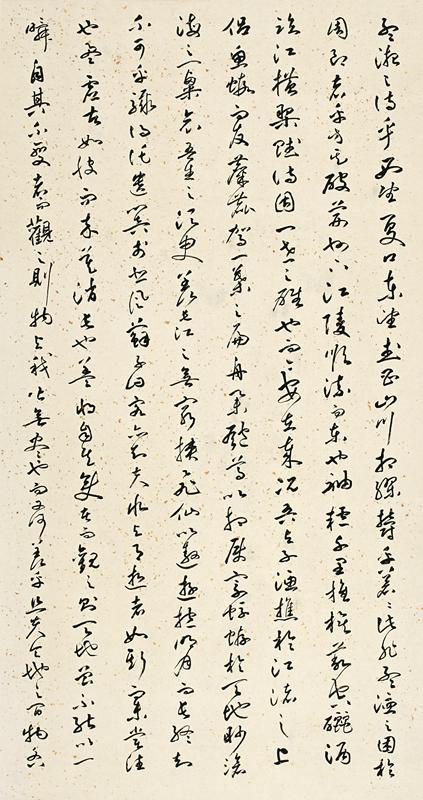 孟德之詩乎西望夏口東望武昌山川相繆鬱乎蒼蒼此非孟德之困於
周郎者乎方其破荊州下江陵順流而東也舳艫千里旌旗蔽空釃酒
臨江橫槊賦詩固一世之雄也而今安在哉況吾與子漁樵於江渚之上
侶魚蝦而友麋鹿駕一葉之扁舟舉匏尊以相屬寄蜉蝣於天地眇滄
海之一粟哀吾生之須臾羨長江之無窮挾飛仙以遨遊抱明月而長終知
不可乎驟得託遺響於悲風蘇子曰客亦知夫水與月逝者如斯未嘗往
也盈虛者如彼而卒莫消長也蓋將自其變者而觀之則天地曾不能以一
瞬自其不變者而觀之則物與我皆無盡也而又何羨乎且夫天地之間物各